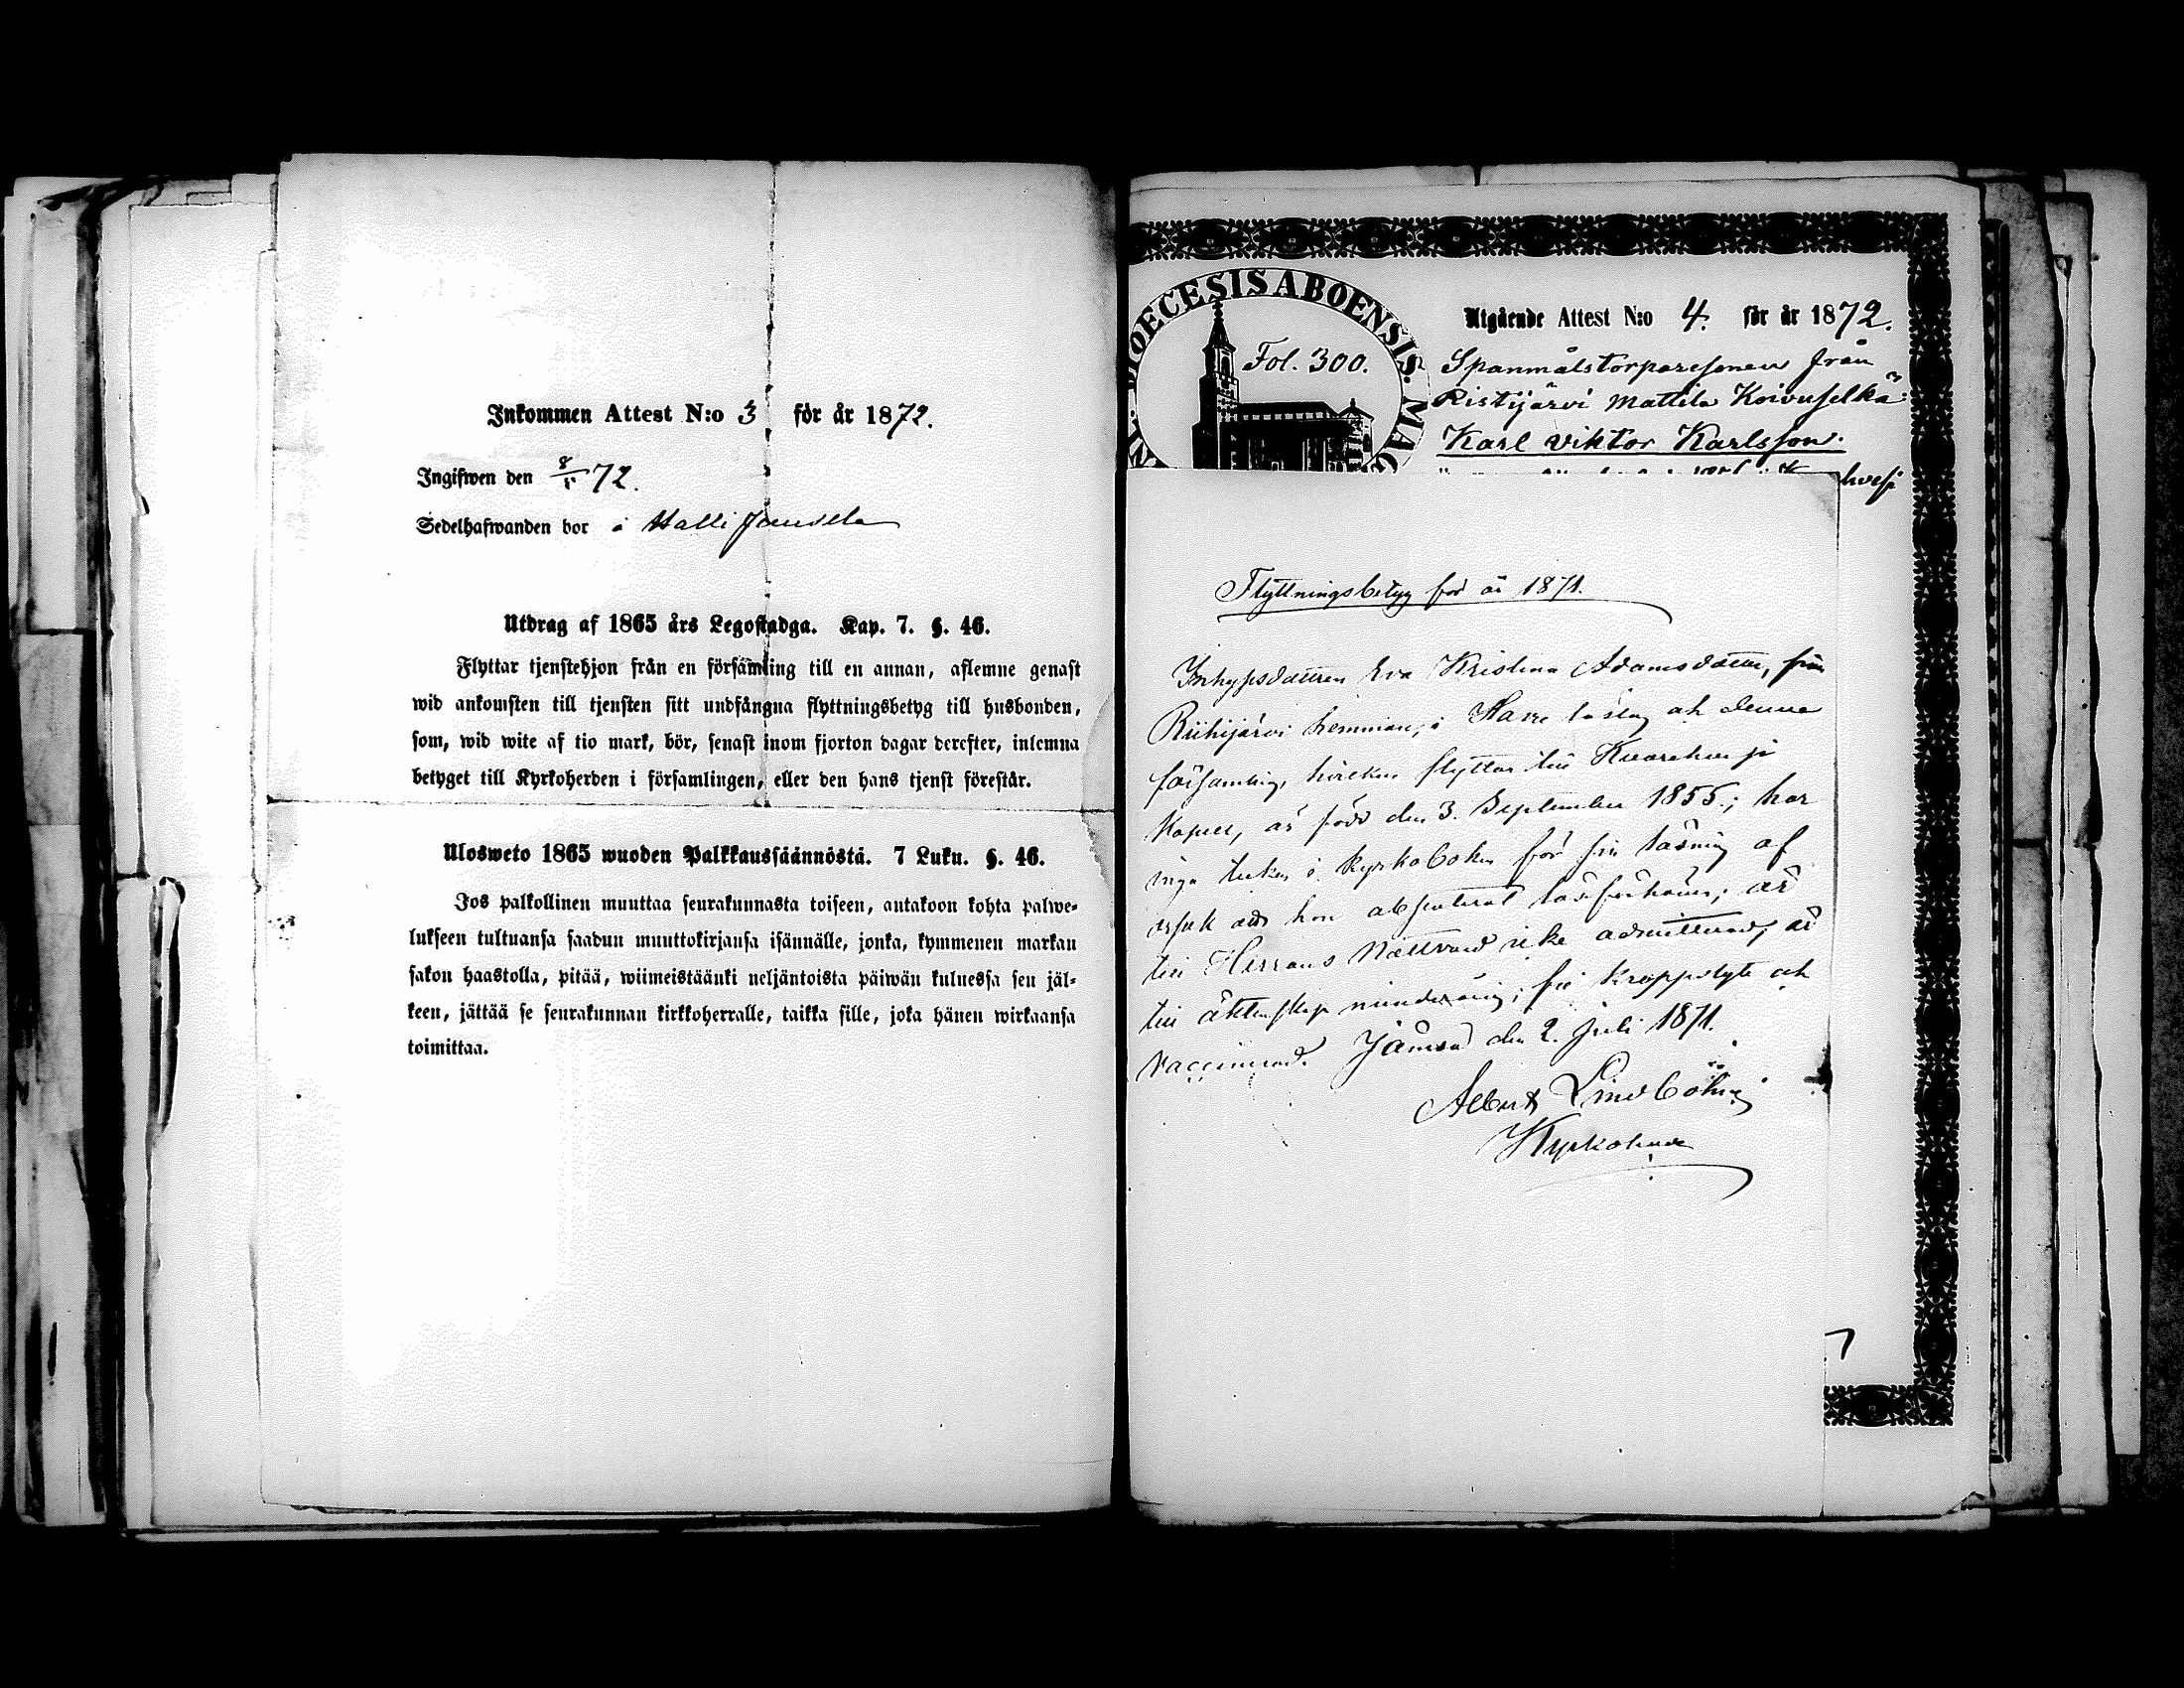 Inkommen Attest N:o 3 för år 1872.
Ingifwen den 8/5 72.
Sedelhafwanden bor i Halli Jaussila
Utdrag af 1865 års Legostadga. Kap. 7. §. 46.
Flyttar tjenstehjon från en församling till en annan, aflemne genast
wid ankomsten till tjensten sitt undfångna flyttningsbetyg till husbonden,
som, wid wite af tio mark, bör, senast inom fjorton dagar derefter, inlemna
betyget till Kyrkoherden i församlingen, eller den hans tjenst förestår.
Ulosweto 1865 wuoden Palkkaussäännöstä. 7 Luku. §. 46.
Jos palkollinen muuttaa seurakunnasta toiseen, antakoon kohta palwe-
lukseen tultuansa saadun muuttokirjansa isännälle, jonka, kymmenen markan
sakon haastolla, pitää, wiimeistäänki neljäntoista päiwän kuluessa sen jäl-
keen, jättää se seurakunnan kirkkoherralle, taikka sille, joka hänen wirkaansa
toimittaa.
DIOECESIS ABOENSIS. MAG
Fol. 300.
Utgående Attest N:o 4. för år 1872.
Spanmålstorparesonen från
Ristijärvi Mattila Koivuselkä
Karl Viktor Karlsson.
hvesi
Flyttningsbetyg för år 1871.
Inhysesdottren Eva Kristina Adamsdotter, från
Riihijärvi hemman, i Harre läslag och denna
församling, hvilken flyttar till Kuorehvesi
Kapell, är född den 3. September 1855; har
inga tecken i kyrkoboken för sin läsning af
orsak att hon absenterat läseförhören; är
till Herrans Nattvard icke admitterad, är
till äktenskap minderårig; fri kroppslyte och
vaccinerad. Jämsä den 2. Juli 1871.
Albert Lindbohm
Kyrkoherde